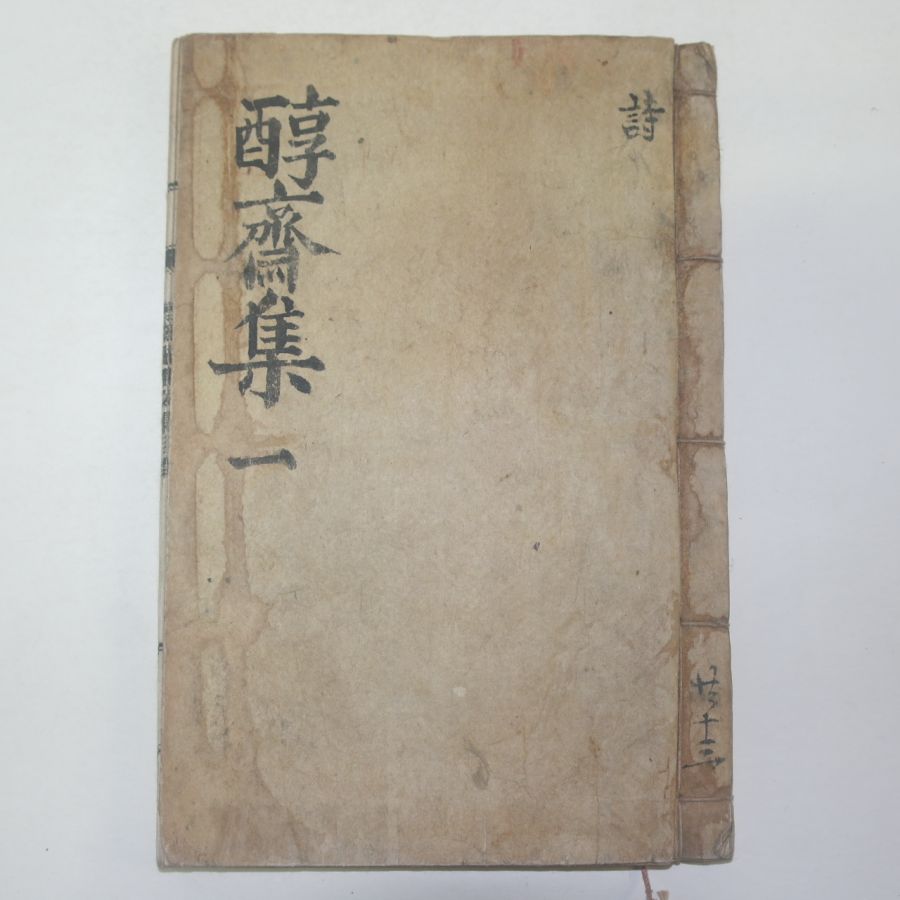 醇齋集 一
詩
共十三